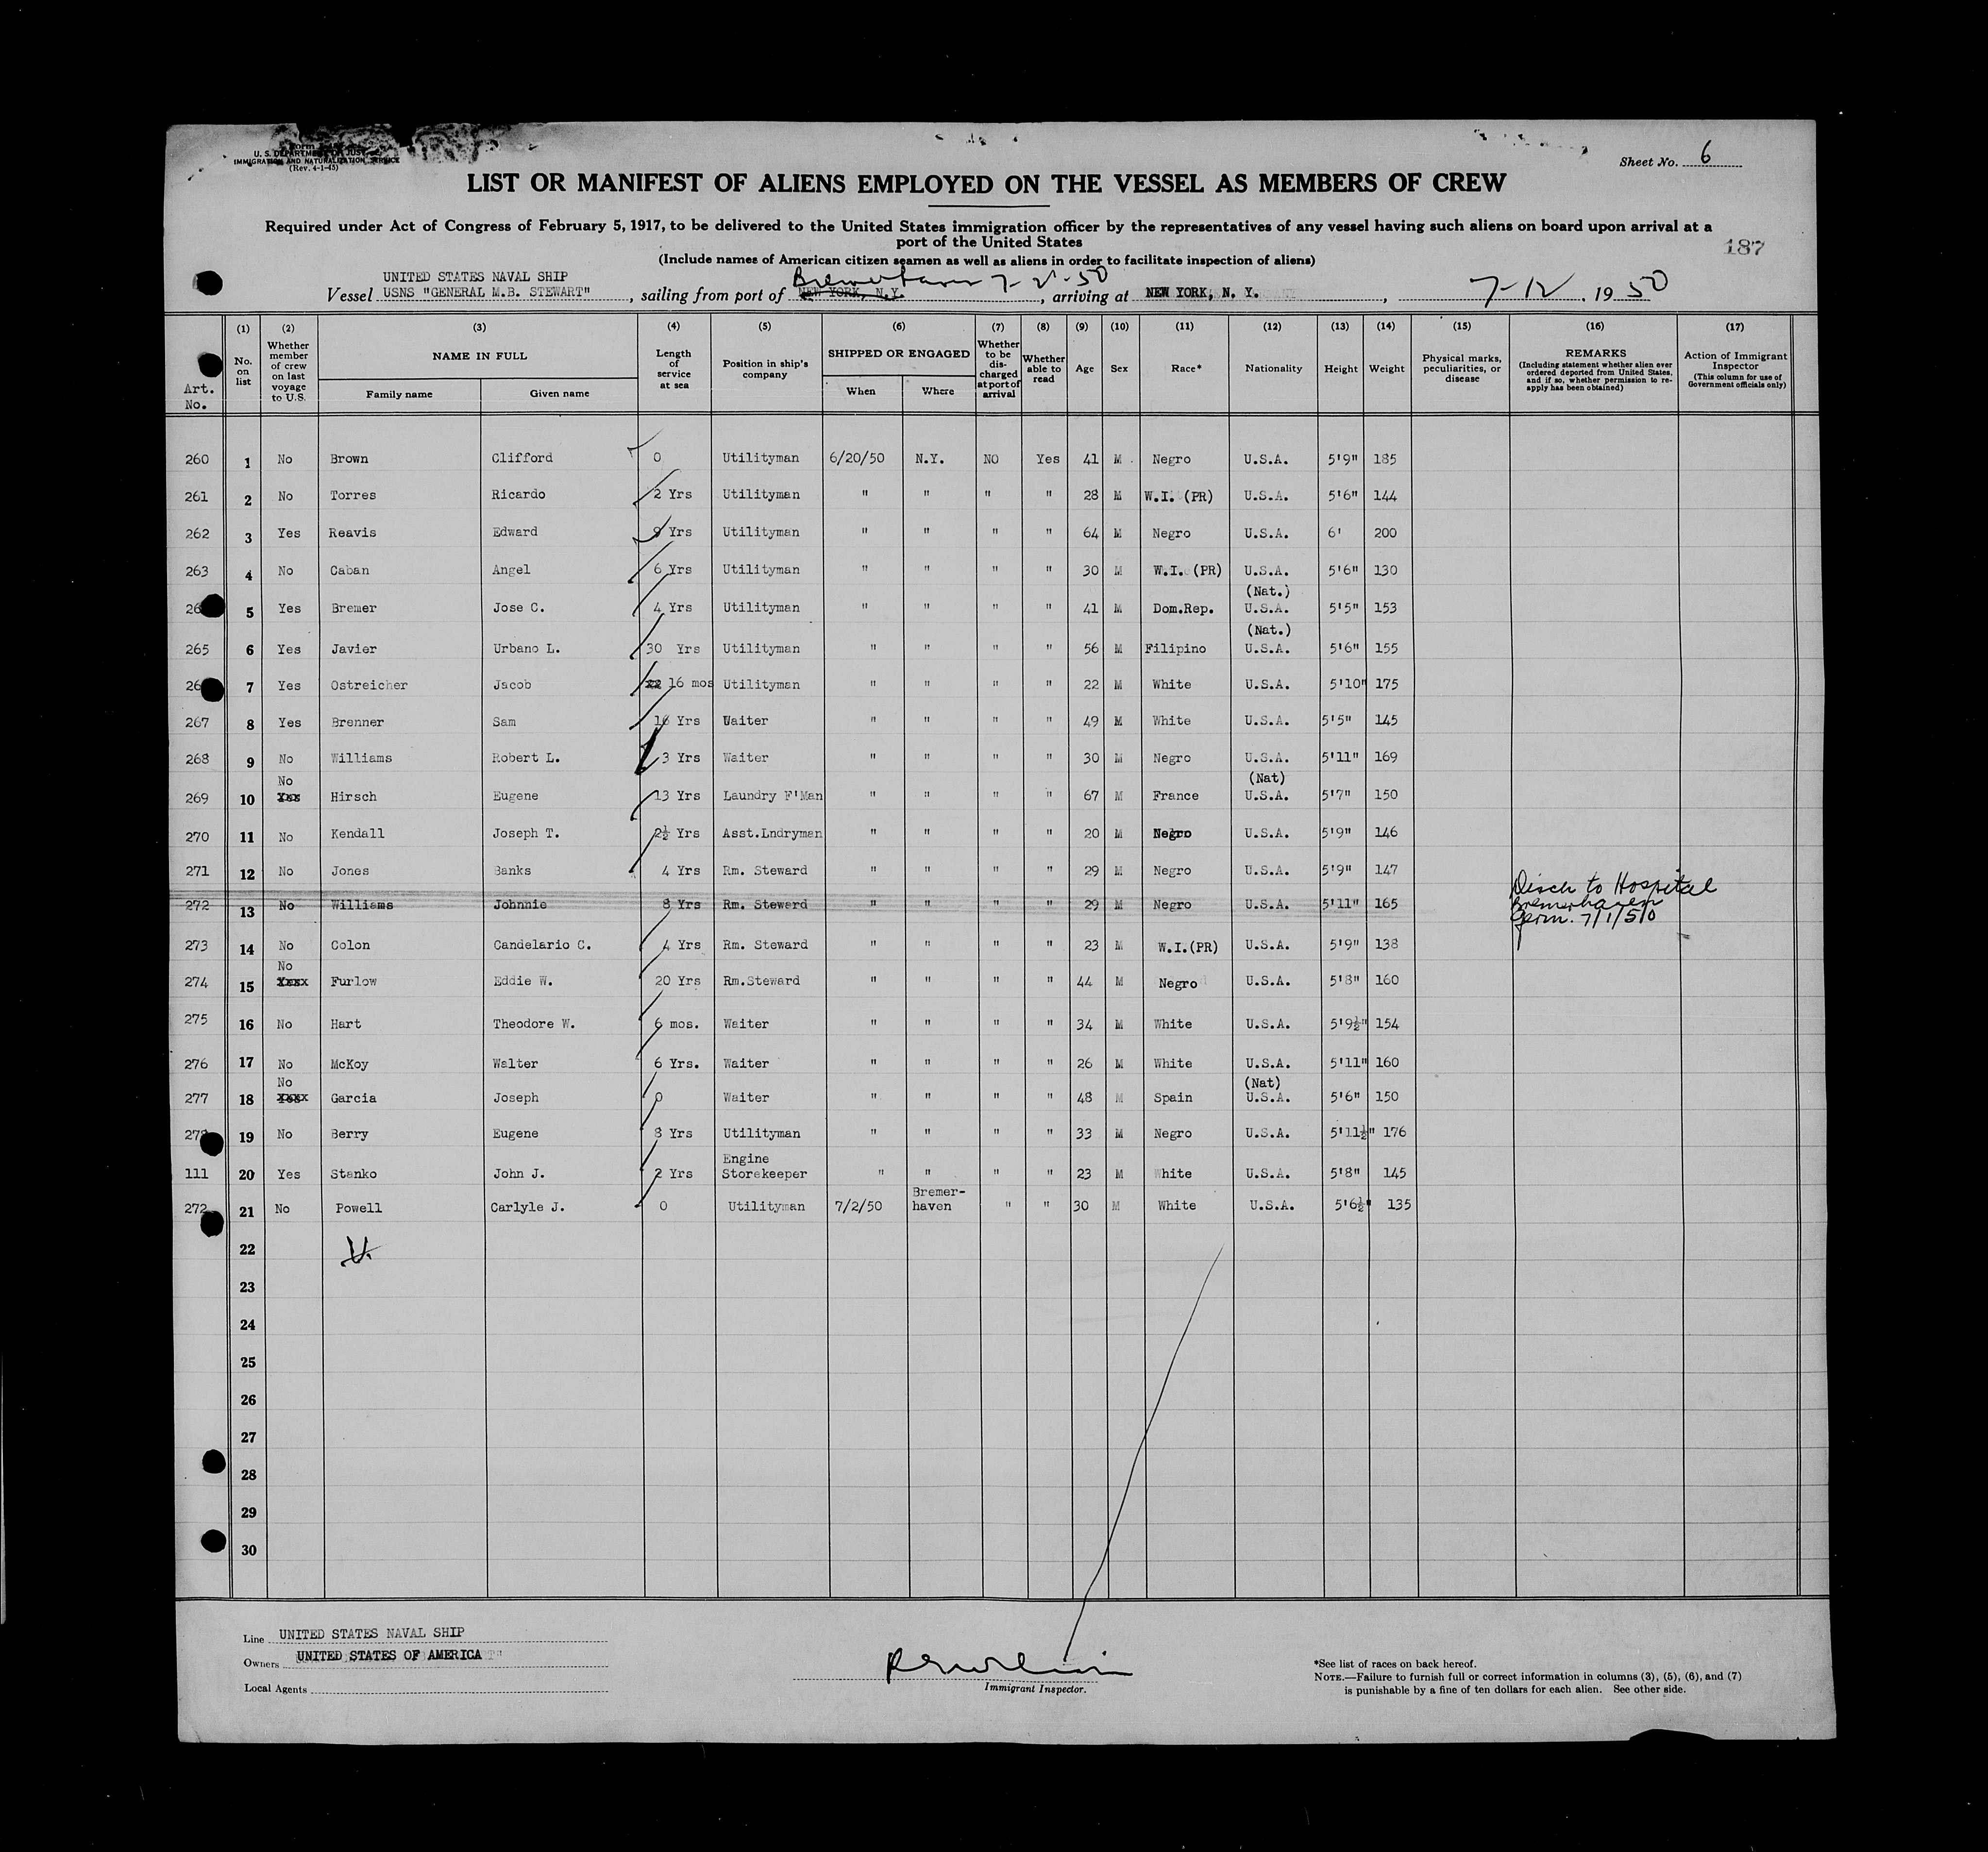 U. S. DEPARTMENT OF JUSTICE
IMMIGRATION AND NATURALIZATION SERVICE
(Rev. 4-1-45)
Sheet No. 6
LIST OR MANIFEST OF ALIENS EMPLOYED ON THE VESSEL AS MEMBERS OF CREW
Required under Act of Congress of February 5, 1917, to be delivered to the United States immigration officer by the representatives of any vessel having such aliens on board upon arrival at a
port of the United States
187
(Include names of American citizen seamen as well as aliens in order to facilitate inspection of aliens)
UNITED STATES NAVAL SHIP
Vessel USNS "GENERAL M.B. STEWART", sailing from port of NEW YORK, N.Y. Bremerhaven 7-2-50, arriving at NEW YORK, N. Y., 7-12, 1950
Art. No. (1) No. on list (2) Whether member of crew on last voyage to U.S. (3) NAME IN FULL Family name Given name (4) Length of service at sea (5) Position in ship's company (6) SHIPPED OR ENGAGED When Where (7) Whether to be discharged at port of arrival (8) Whether able to read (9) Age (10) Sex (11) Race* (12) Nationality (13) Height (14) Weight (15) Physical marks, peculiarities, or disease (16) REMARKS (Including statement whether alien ever ordered deported from United States, and if so, whether permission to re-apply has been obtained) (17) Action of Immigrant Inspector (This column for use of Government officials only)
260 1 No Brown Clifford 0 Utilityman 6/20/50 N.Y. NO Yes 41 M Negro U.S.A. 5'9" 185
261 2 No Torres Ricardo 2 Yrs Utilityman " " " " 28 M W.I. (PR) U.S.A. 5'6" 144
262 3 Yes Reavis Edward 9 Yrs Utilityman " " " " 64 M Negro U.S.A. 6' 200
263 4 No Caban Angel 6 Yrs Utilityman " " " " 30 M W.I. (PR) U.S.A. 5'6" 130
26 5 Yes Bremer Jose C. 4 Yrs Utilityman " " " " 41 M Dom.Rep. (Nat.) U.S.A. 5'5" 153
265 6 Yes Javier Urbano L. 30 Yrs Utilityman " " " " 56 M Filipino (Nat.) U.S.A. 5'6" 155
26 7 Yes Ostreicher Jacob 22 16 mos Utilityman " " " " 22 M White U.S.A. 5'10" 175
267 8 Yes Brenner Sam 16 Yrs Waiter " " " " 49 M White U.S.A. 5'5" 145
268 9 No Williams Robert L. 3 Yrs Waiter " " " " 30 M Negro U.S.A. 5'11" 169
269 10 No Yes Hirsch Eugene 13 Yrs Laundry F'Man " " " " 67 M France (Nat) U.S.A. 5'7" 150
270 11 No Kendall Joseph T. 2½ Yrs Asst.Lndryman " " " " 20 M Negro U.S.A. 5'9" 146
271 12 No Jones Banks 4 Yrs Rm. Steward " " " " 29 M Negro U.S.A. 5'9" 147
272 13 No Williams Johnnie 8 Yrs Rm. Steward " " " " 29 M Negro U.S.A. 5'11" 165 Disch to Hospital
Bremerhaven
Germ. 7/1/50
273 14 No Colon Candelario C. 4 Yrs Rm. Steward " " " " 23 M W.I.(PR) U.S.A. 5'9" 138
274 15 No Furlow Eddie W. 20 Yrs Rm.Steward " " " " 44 M Negro U.S.A. 5'8" 160
275 16 No Hart Theodore W. 6 mos. Waiter " " " " 34 M White U.S.A. 5'9½" 154
276 17 No McKoy Walter 6 Yrs. Waiter " " " " 26 M White U.S.A. 5'11" 160
277 18 No Garcia Joseph 0 Waiter " " " " 48 M Spain (Nat) U.S.A. 5'6" 150
278 19 No Berry Eugene 8 Yrs Utilityman " " " " 33 M Negro U.S.A. 5'11½" 176
111 20 Yes Stanko John J. 2 Yrs Engine Storekeeper " " " " 23 M White U.S.A. 5'8" 145
272 21 No Powell Carlyle J. 0 Utilityman 7/2/50 Bremerhaven " " 30 M White U.S.A. 5'6½" 135
22
23
24
25
26
27
28
29
30
Line UNITED STATES NAVAL SHIP
Owners UNITED STATES OF AMERICA
Local Agents
Immigrant Inspector.
*See list of races on back hereof.
NOTE.—Failure to furnish full or correct information in columns (3), (5), (6), and (7)
is punishable by a fine of ten dollars for each alien. See other side.